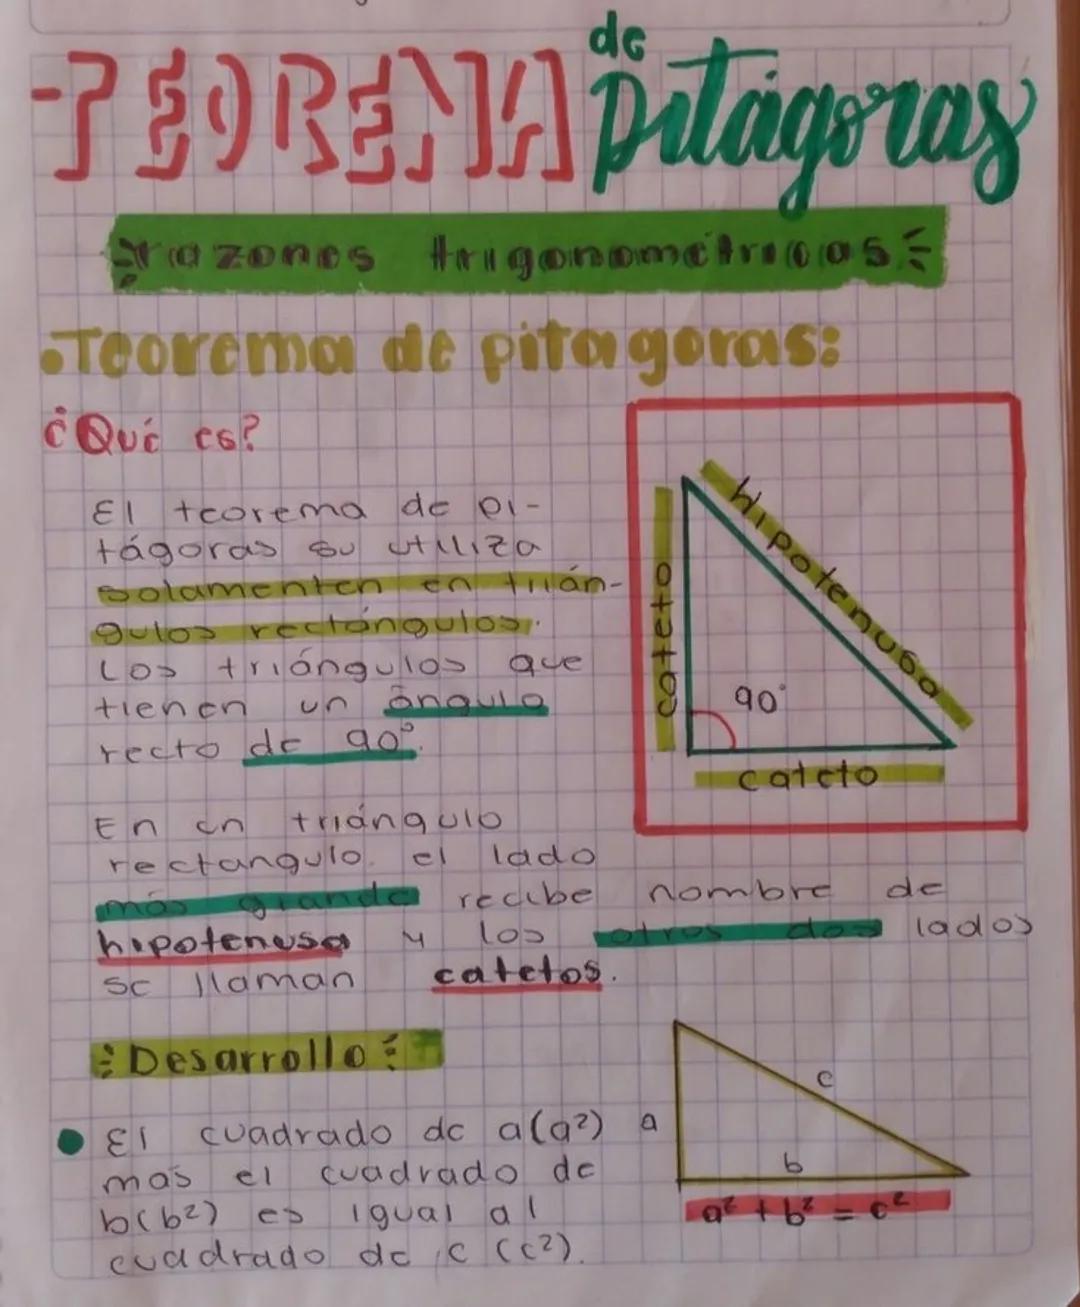 TEOREMA de Pitágoras
razones trigonometricas
•Teorema de pitagoras:
¿Qué es?
El teorema de pi-
tágoras su utiliza
solamenten en trián-
gulos rectángulos.
Los triángulos que
tienen un ángulo
recto de 90°.
cateto
hipotenusa
90°
cateto
En un triángulo
rectangulo. el lado
más grande recibe nombre de
hipotenusa y los otros dos lados
se llaman catetos.
Desarrollo
• El cuadrado de a(a²)
mas el cuadrado de
b(b²) es igual al
cuadrado de c (c²).
a
c
b
a² + b² = c²